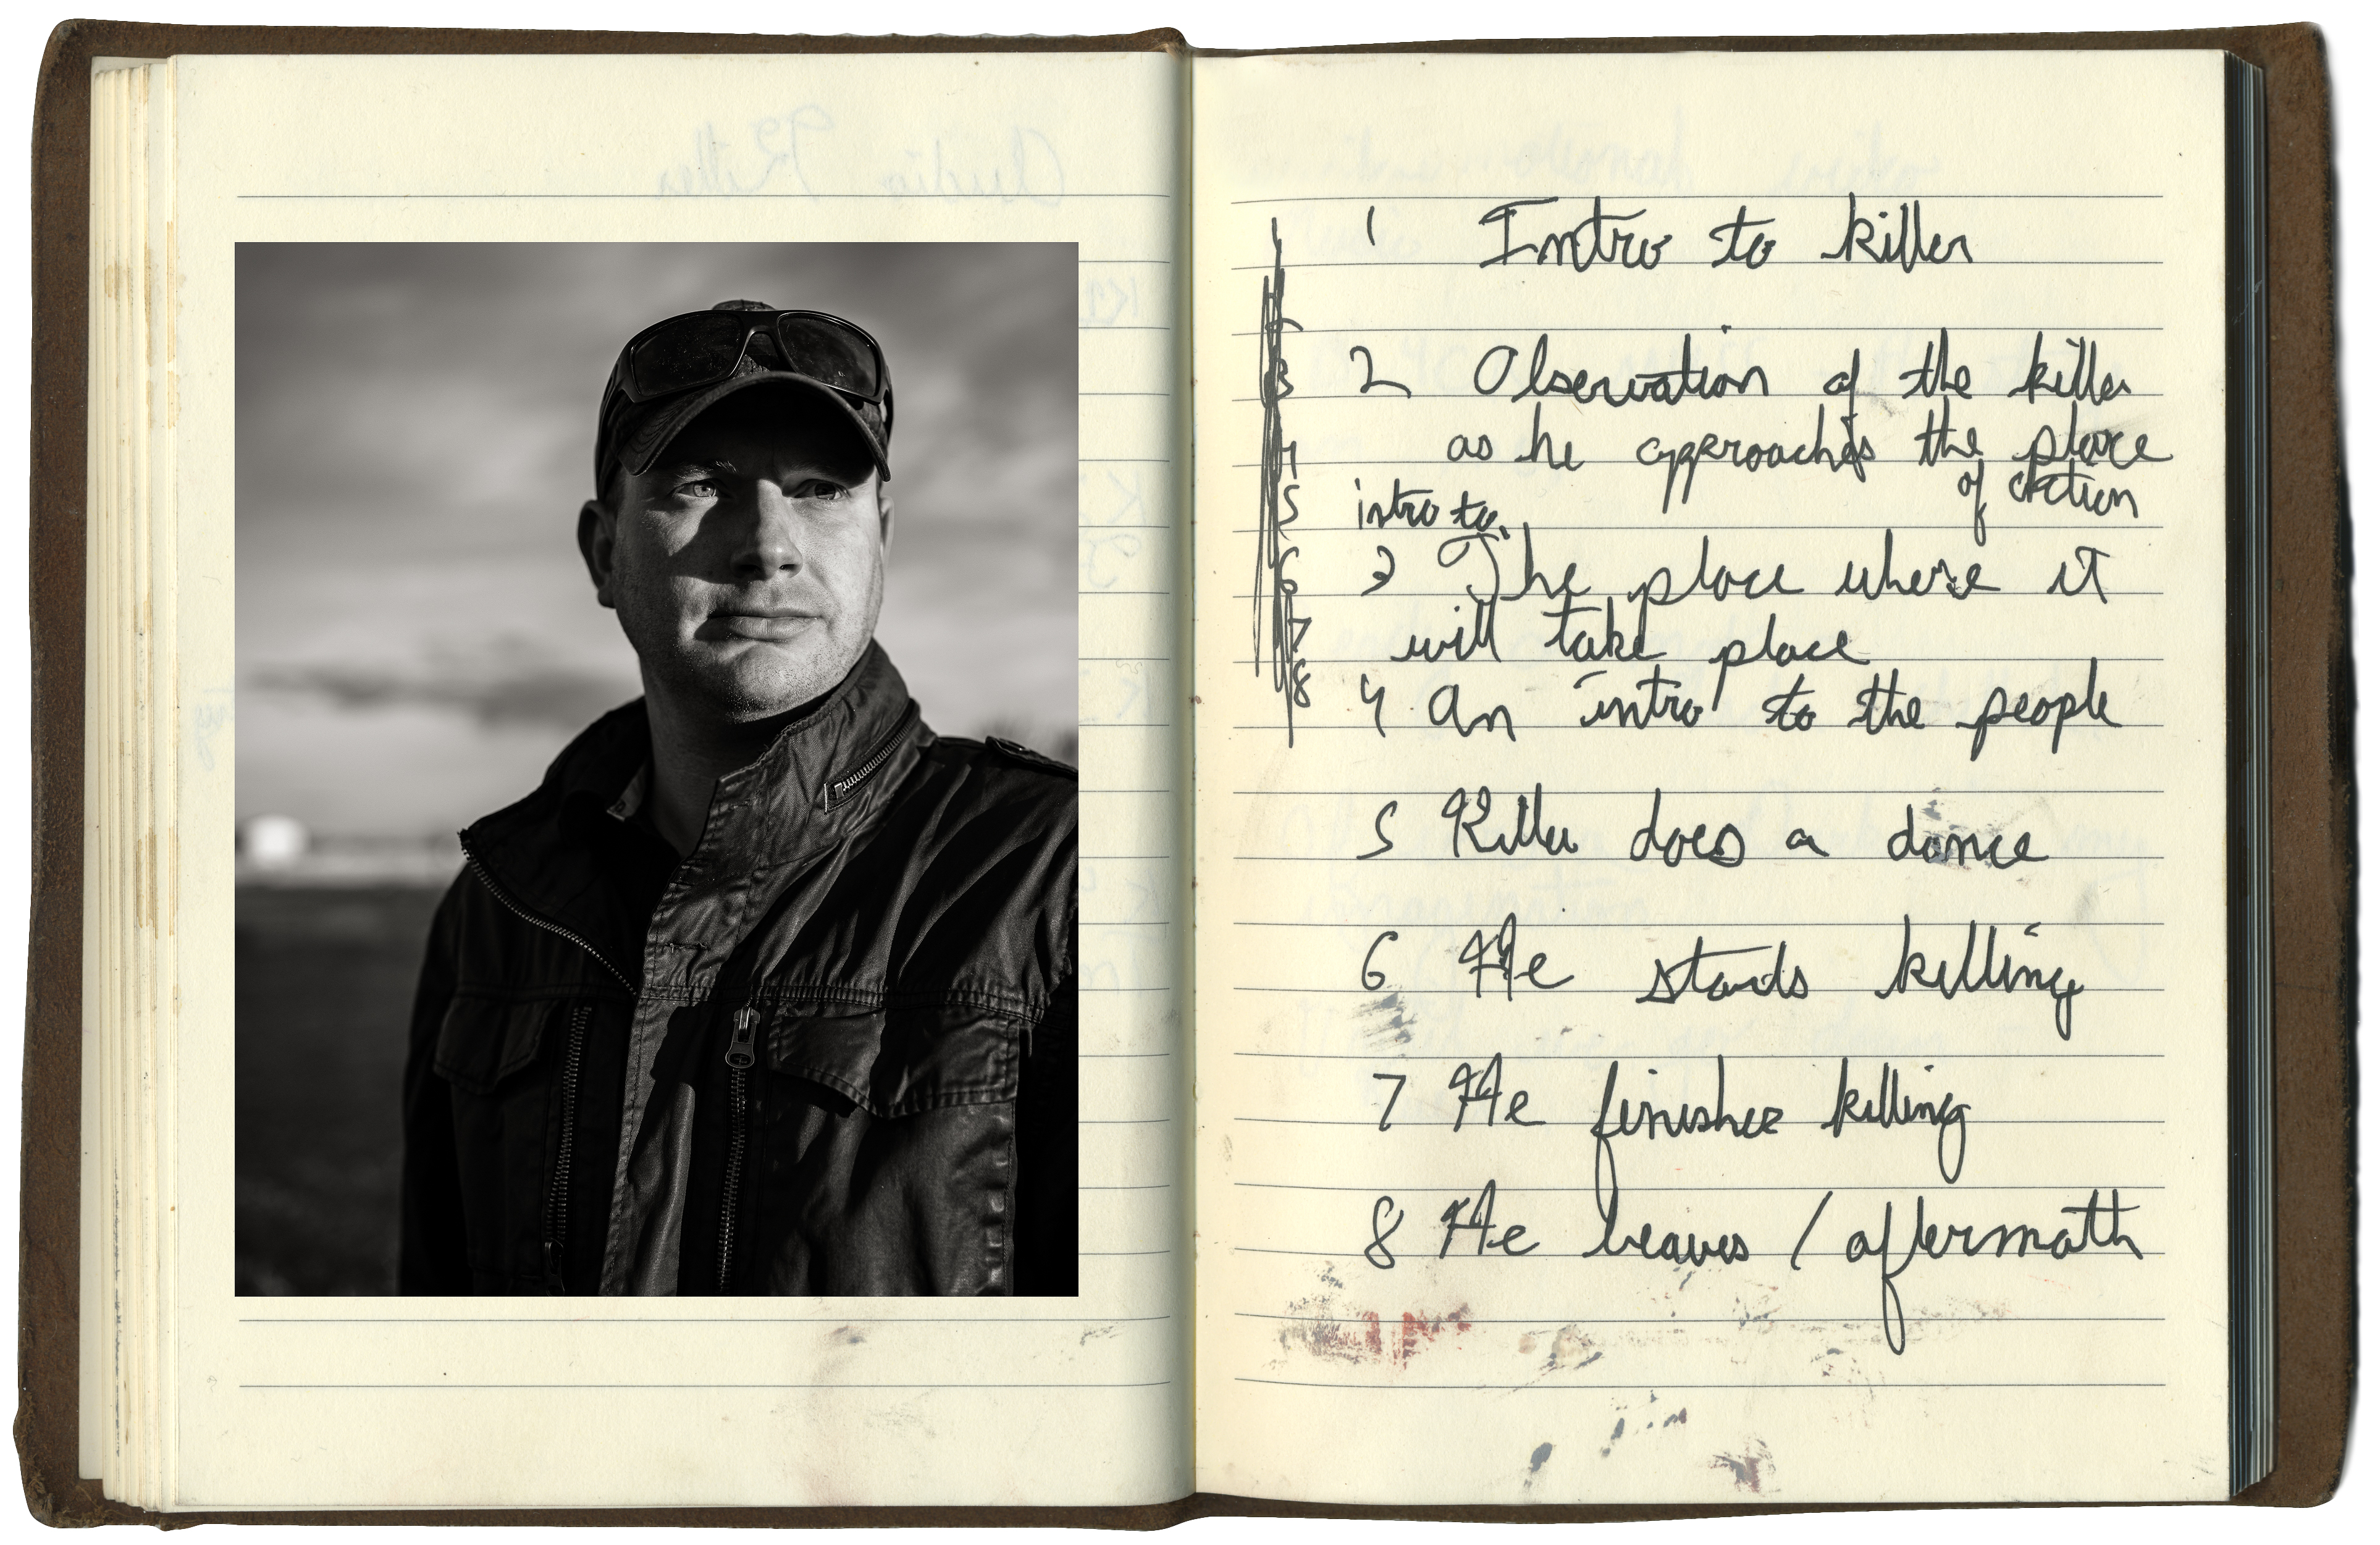 1 Intro to killer
2 Observation of the killer
as he approaches the place
of action
intro to
3 The place where it
will take place
4 An intro to the people
5 Killer does a dance
6 He starts killing
7 He finishes killing
8 He leaves / aftermath